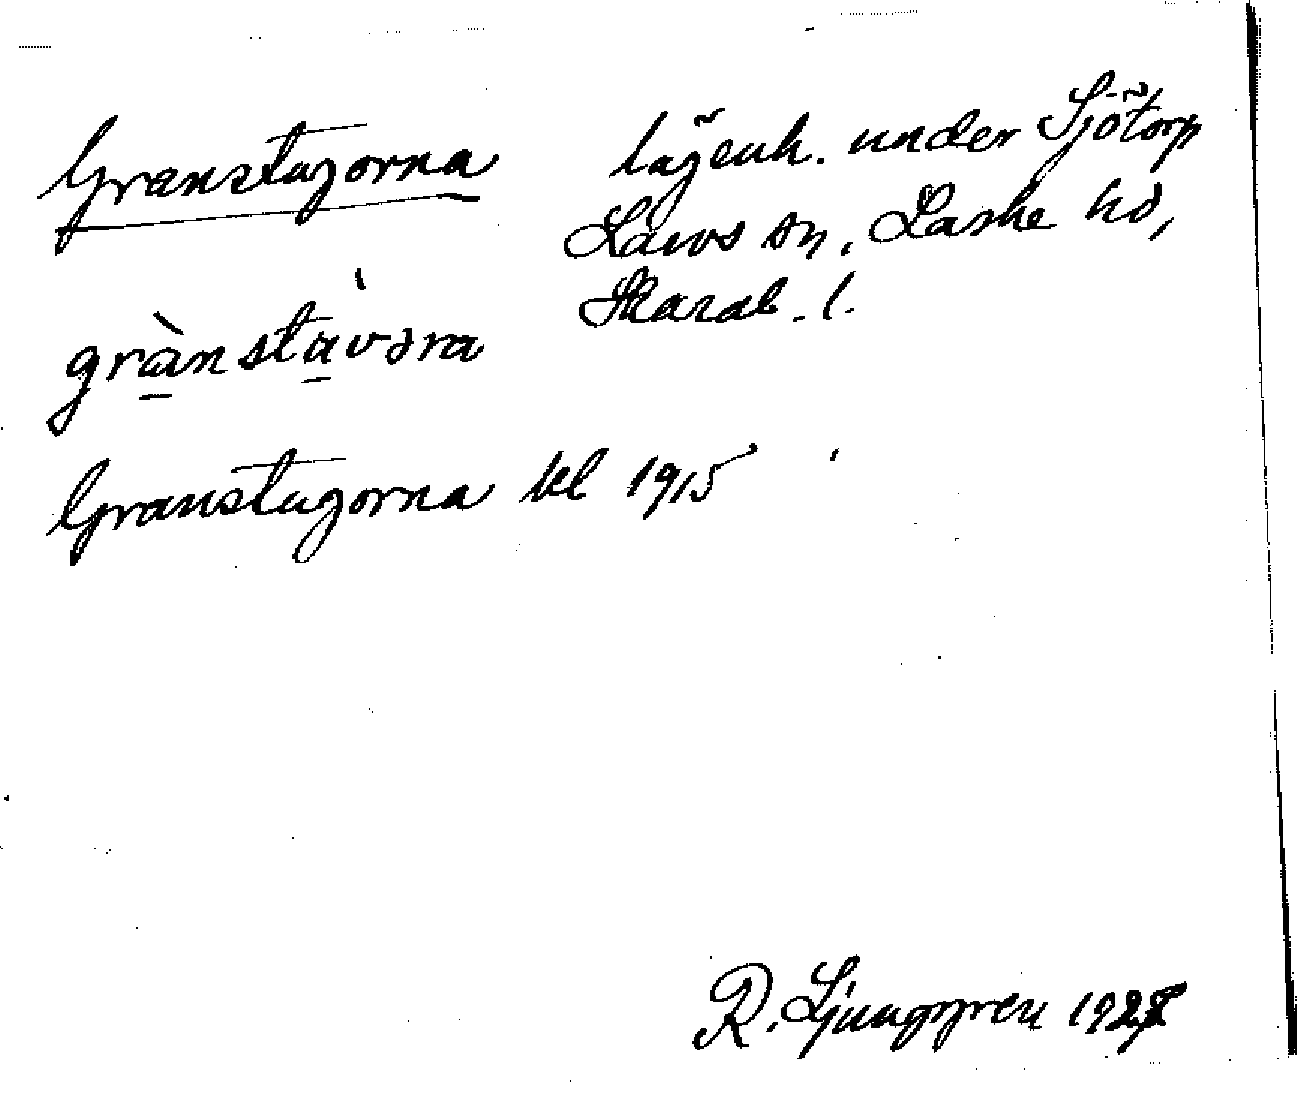 Granstugorna lägenh. under Sjötorp
Larvs sn, Laske hd,
Skarab. l.
grànstàvəra
Granstugorna kl 1915
R. Ljunggren 1927